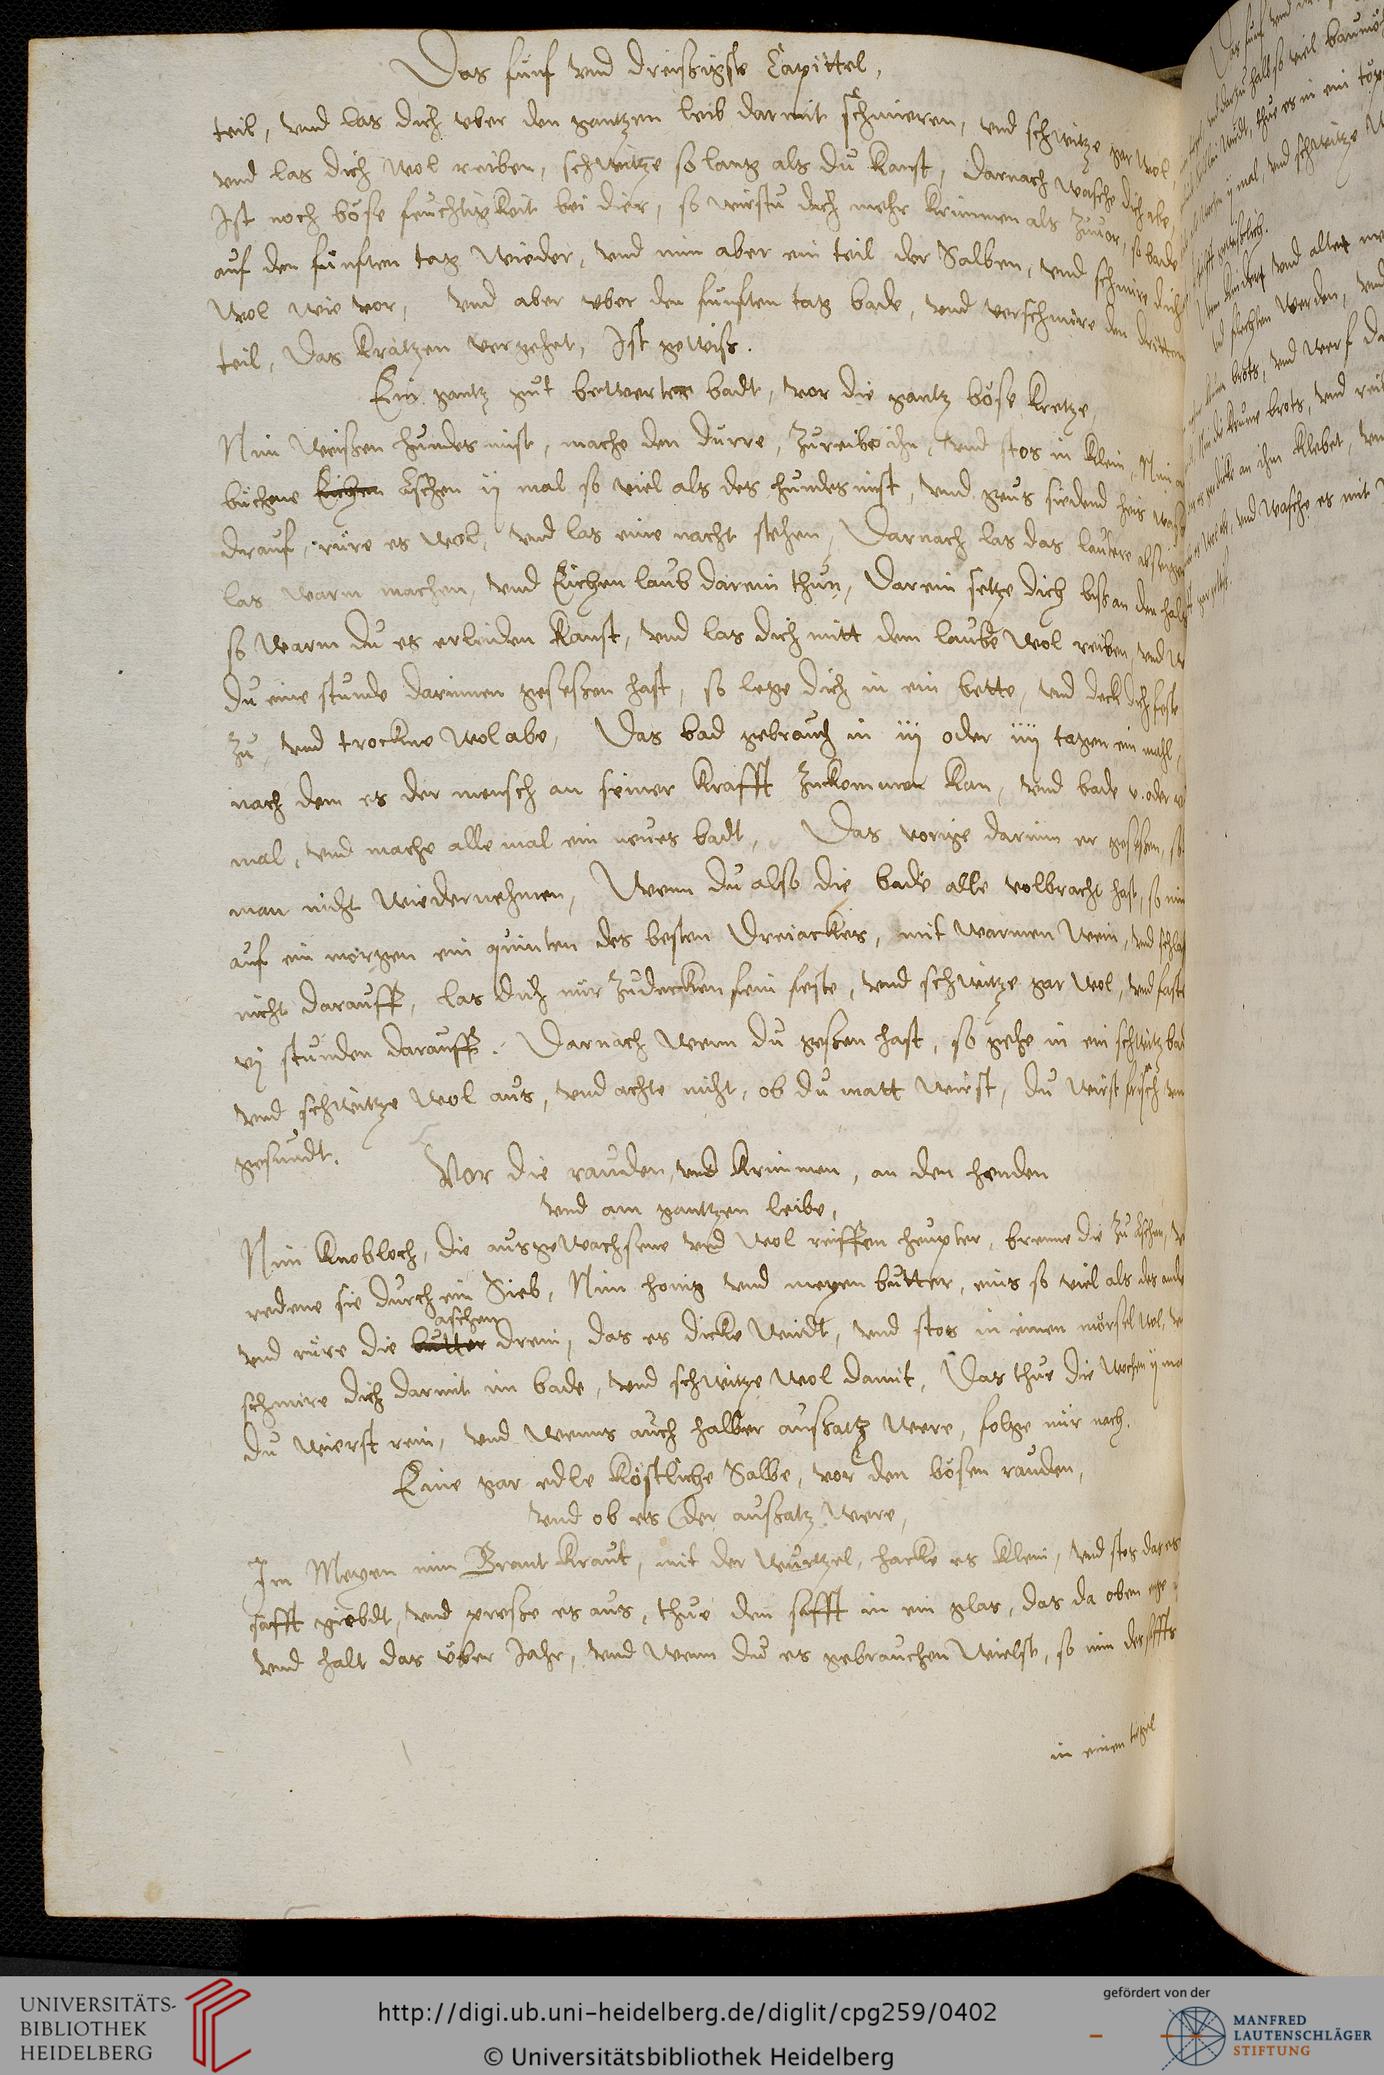 Das funf vnd dreissigste Capittel,
teil, vnd las dich vber den gantzen leib darmit schmieren, vnd schwitze gar wol,
vnd las dich wol reiben, schwitze so lang als du kanst, darnach wasche dich abe,
Ist noch böse feuchtigkeit bei dier, so wirstu dich mehr krimmen als zuuor, so bade
auf den funften tag wieder, vnd nim aber ein teil der Salben, vnd schmire dich
wol wie vor, vnd aber vber den funften tag bade, vnd verschmire den dritten
teil, Das kratzen vergehet, Ist gewiss.
Ein gantz gut bewerter badt, vor die gantz böse kretze,
Nim weissen hundes mist, mache den durre, zureibe ihn, vnd stos in klein, Nim
buchene äschen ij mal so viel als des hundes mist, vnd geus siedend heis
drauf, rüre es wol, vnd las eine nacht stehen, Darnach las das lautere abseigen
las warm machen, vnd Eichen laub darein thun, Darein setze dich biss an den hals
so warm du es erleiden kanst, vnd las dich mitt dem laube wol reiben, vnd
du eine stunde darinnen gesessen hast, so lege dich in ein bette, vnd deck dich feste
zu, vnd trockne wol abe, Das bad gebrauch in iij oder iiij tagen ein mahl,
nach dem es der mensch an seiner krafft zukommen kan, vnd bade v. oder
mal, vnd mache alle mal ein neues badt, Das vorige darinn er gesessen,
man nicht wiedernehmen, Wenn du also die bade alle volbracht hast, so nim
auf ein morgen ein quinten des besten Dreiackes, mit warmen wein, vnd schlaf
nicht darauff, las dich nur zudecken fein feste, vnd schwitze gar wol, vnd faste
vj stunden darauff. Darnach wenn du gessen hast, so gehe in ein schwitz bad
vnd schwitze wol aus, vnd achte nicht, ob du matt wirst, du wirst frisch
gesundt.
Vor die rauden, vnd krimmen, an den henden
vnd am gantzen leibe,
Nim knobloch, die ausgewachsene vnd wol reiffen heupter, brenne die zu äschen,
redene sie durch ein Sieb, Nim honig vnd meyen butter, eins so viel als des
aschen
vnd rüre die butter drein, das es dicke wirdt, vnd stos in einen mörsel wol,
schmire dich darmit im bade, vnd schwitze wol damit, Das thue die wochen ij
du wierst rein, vnd wenns auch halber aussatz were, folge nur nach.
Eine gar edle köstliche Salbe, vor den bösen rauden,
vnd ob es der aussatz were,
Im Meyen nim Brant kraut, mit der wurtzel, hacke es klein, vnd stos das es
safft giebdt, vnd presse es aus, thue den safft in ein glas, das da oben enge
vnd halt das über Jahr, vnd wenn du es gebrauchen wielst, so nim des saffts
in einen tigel
UNIVERSITÄTS-
BIBLIOTHEK
HEIDELBERG
http://digi.ub.uni-heidelberg.de/diglit/cpg259/0402
© Universitätsbibliothek Heidelberg
gefördert von der
MANFRED
LAUTENSCHLÄGER
STIFTUNG